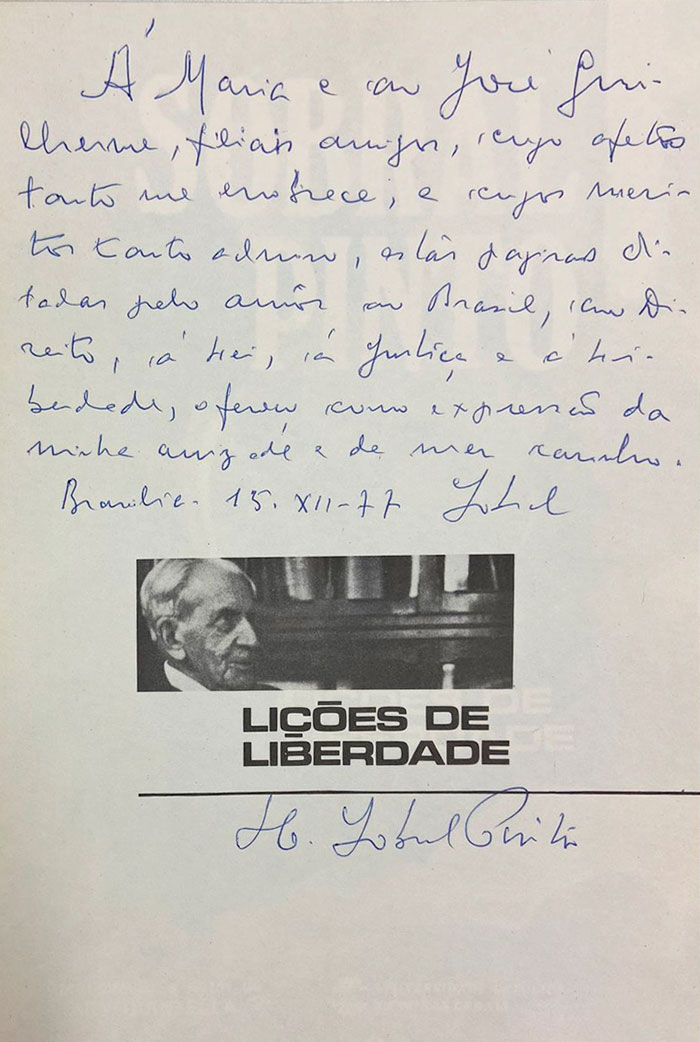 Á Maria e ao José Gui-
lherme, fiéis amigos, cujo afeto
tanto me enobrece, e cujos meri-
tos tanto admiro, estas paginas di-
tadas pelo amôr ao Brasil, ao Di-
reito, á Lei, á Justiça e á Li-
berdade, ofereço como expressão da
minha amizade e de meu carinho.
Brasilia. 15. XII-77 Sobral
LIÇÕES DE
LIBERDADE
H. Sobral Pinto
SOBRAL
PINTO